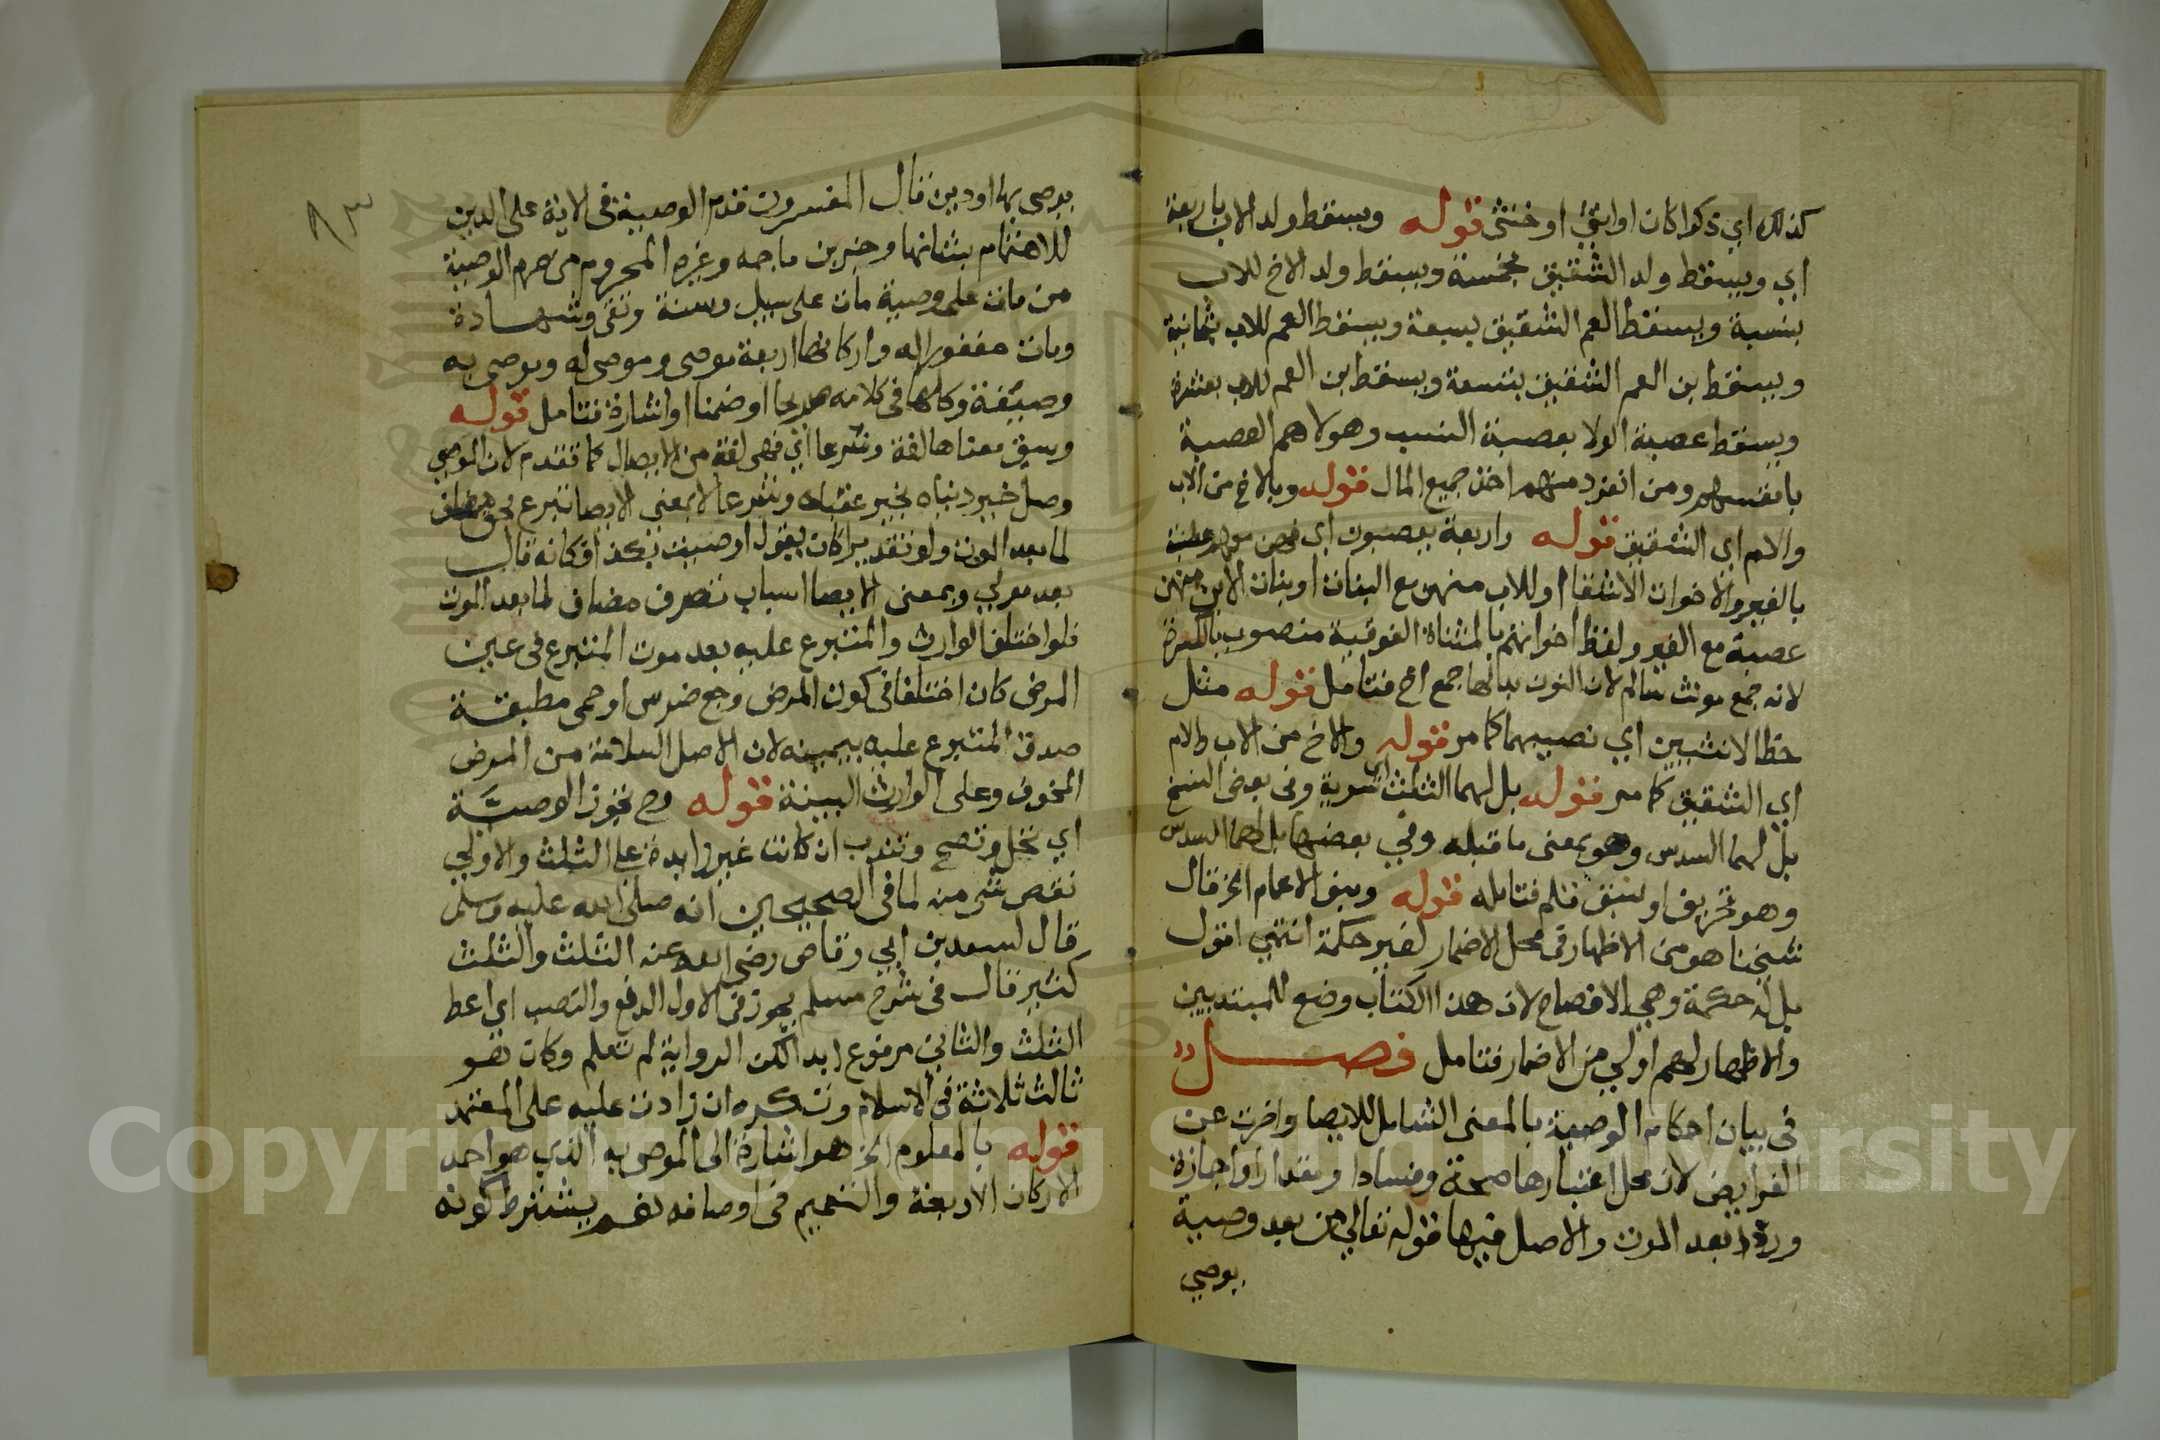 كذلك اي ذكرا كان او انثى او خنثى قوله ويسقط ولد الاب باربعة
اي ويسقط ولد الشقيق بخمسة ويسقط ولد الاخ للاب
بستة ويسقط العم الشقيق بسبعة ويسقط العم للاب بثمانية
ويسقط بن العم الشقيق بتسعة ويسقط بن العم للاب بعشرة
ويسقط عصبة الولا بعصبة النسب وهولاهم العصبة
بانفسهم ومن انفرد منهم اخذ جميع المال قوله وبالاخ من الاب
والام اي الشقيق قوله واربعة يعصبون اي فهن
بالغير والاخوات الاشقا او للاب منهن مع البنات او بنات الابن
عصبة مع الغير ولفظ اخواتهم بالمثناة الفوقية منصوب بالكسرة
لانه جمع مونث سالم لان النون بدلها جمع اخ فتامل قوله مثل
حظ الانثيين اي نصيبهما كما مر قوله والاخ من الاب والام
اي الشقيق كما مر قوله بل لهما الثلث اي سوية وفي بعض النسخ
بل لهما السدس وهو بمعنى ما قبله وفي بعضها بل لهما السدس
وهو تحريف او سبق قلم فتامله قوله وبنو الاعمام الخ قال
شيخنا هو من الاظهار في محل الاضمار لغير حكمة انتهى اقول
بل له حكمة وهي الافصاح لان هذا الكتاب وضع للمبتديين
والاظهار لهم اولي من الاضمار فتامل فصل
في بيان احكام الوصية بالمعنى الشامل للايصا واخرت عن
الفرايض لان محل اعتبارها صحة وفسادا ومقدارا واجازة
وردا بعد الموت والاصل فيها قوله تعالي من بعد وصية
يوصي
٨٣
يوصى بها او دين قال المفسرون قدم الوصية في الاية على الدين
للاهتمام بشانها وخبر بن ماجه وغيره المحروم من حرم الوصية
من مات على وصية مات على سبيل وسنة وتقى وشهادة
ومات مغفورا له واركانها اربعة موصى وموصى له وموصى به
وصيغة وكلها في كلامه صريحا او ضمنا او اشارة فتامل قوله
وسبق معناها لغة وشرعا اي فهى لغة من الايصال كما تقدم لان الموصي
وصل خير دنياه بخير عقباه وشرعا لا بمعنى الايصا تبرع بحق مضاف
لما بعد الموت ولو تقديرا كان يقول اوصيت بكذا فكانه قال
بعد موتي وبمعنى الايصا اسباب تصرف مضاف لما بعد الموت
فلو اختلف الوارث والمتبرع عليه بعد موت المتبرع في عين
المرض كان اختلفا في كون المرض وجع ضرس او حمى مطبقة
صدق المتبرع عليه بيمينه لان الاصل السلامة من المرض
المخوف وعلى الوارث البينة قوله وح تجوز الوصية
اي تحل وتصح وتندب ان كانت غير زايدة على الثلث والاولي
نقص شي منه لما في الصحيحين انه صلى الله عليه وسلم
قال لسعد بن ابي وقاص رضي الله عنه الثلث والثلث
كثير قال في شرح مسلم يجوز في الاول الرفع والنصب اي اعط
الثلث والثاني مرفوع ابدا لكن الرواية لم تعلم وكان هو
ثالث ثلاثة في الاسلام وتكره ان زادت عليه على المعتمد
قوله بالمعلوم الخ هو اشارة الى الموصى به الذي هو احد
الاركان الاربعة والتعميم في اوصافه نعم يشترط كونه
Copyright © King Saud University